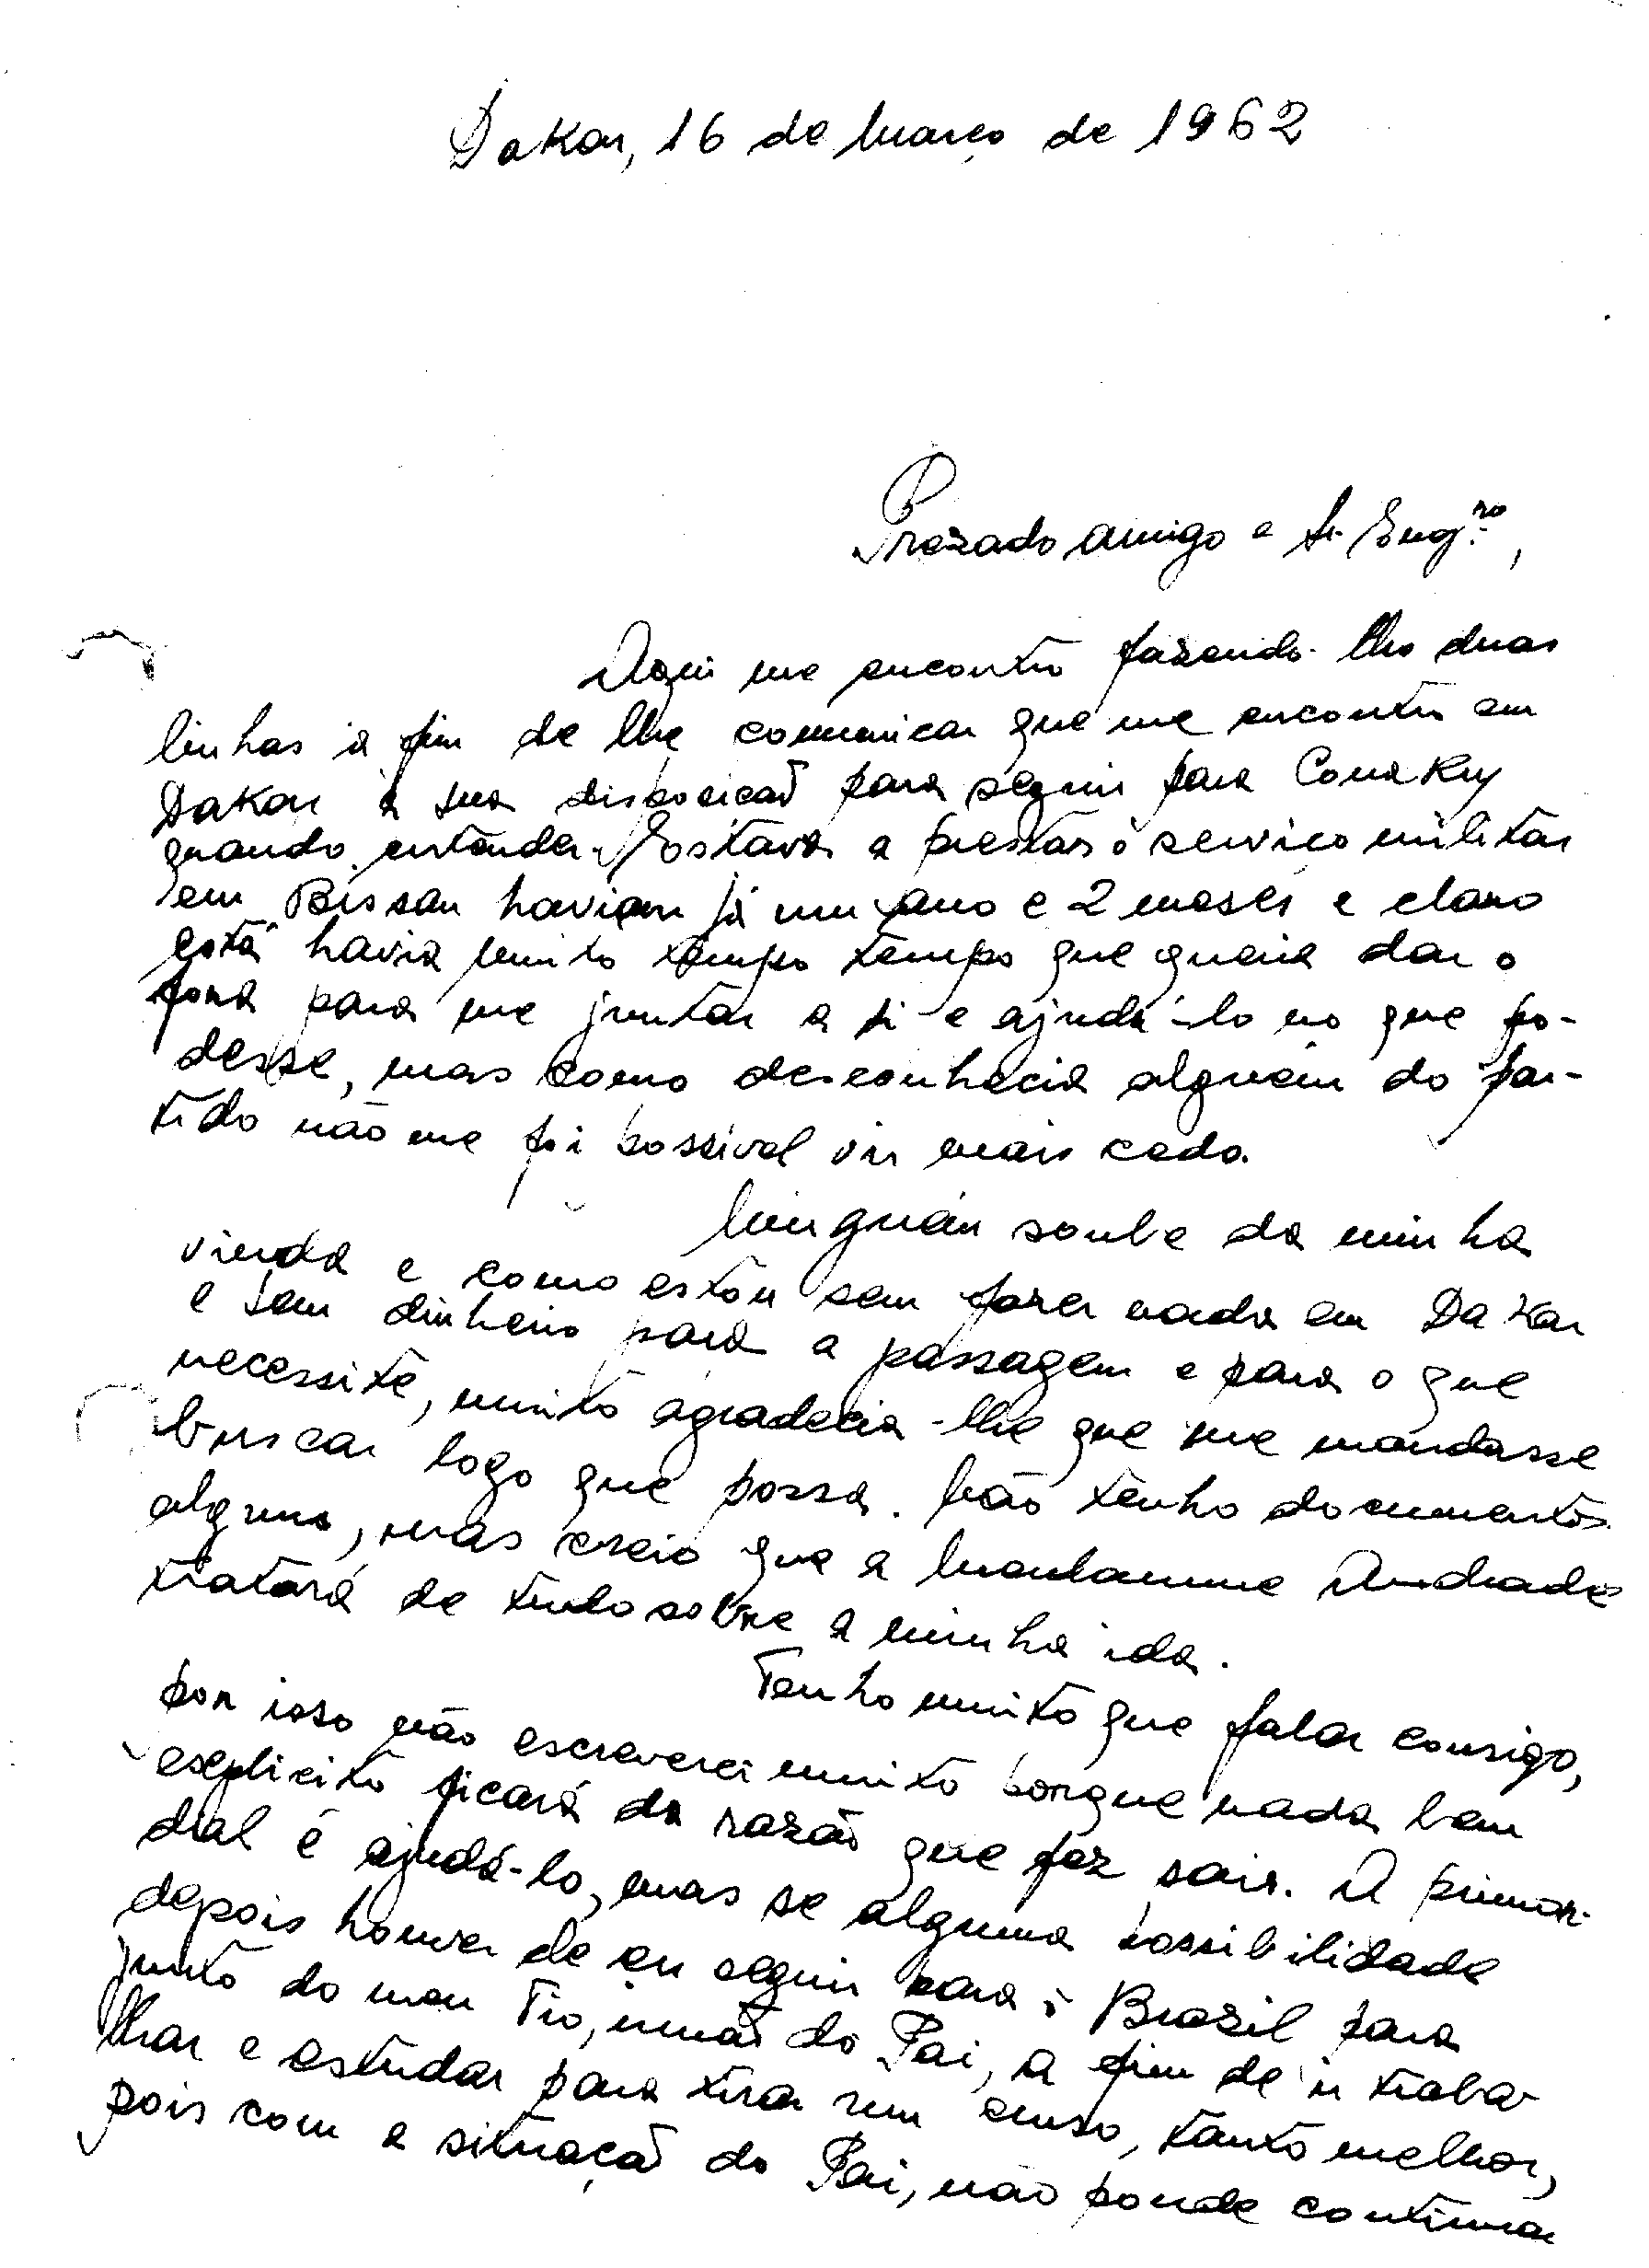 Dakar, 16 de Março de 1962
Prezado amigo e Sr. Engro.,
Aqui me encontro fazendo-lhe duas
linhas a fim de lhe comunicar que me encontro em
Dakar à sua disposicão para seguir para Conakry
quando entender. Estava a prestar o serviço militar
em Bissau haviam já um ano e 2 meses e claro
está havia muito tempo tempo que queria dar o
fora para me juntar a si e ajudá-lo no que po-
desse, mas como desconhecia alguém do par-
tido não me foi possivel vir mais cedo.
Ninguém soube da minha
vinda e como estou sem fazer nada em Dakar
e sem dinheiro para a passagem e para o que
necessite, muito agradecia-lhe que me mandasse
buscar logo que possa. Não tenho documentos
alguns, mas creio que a Mandamme Andrade
tratará de tudo sobre a minha ida.
Tenho muito que falar consigo,
por isso não escreverei muito porque nada bem
esplicito ficará da razão que fez sair. O primor-
dial é ajudá-lo, mas se alguma possibilidade
depois houver de eu seguir para o Brazil para
junto do meu Tio, irmão do Pai, a fim de ir traba-
lhar e estudar para tirar um curso, tanto melhor,
pois com a situação do Pai, não poude continuar